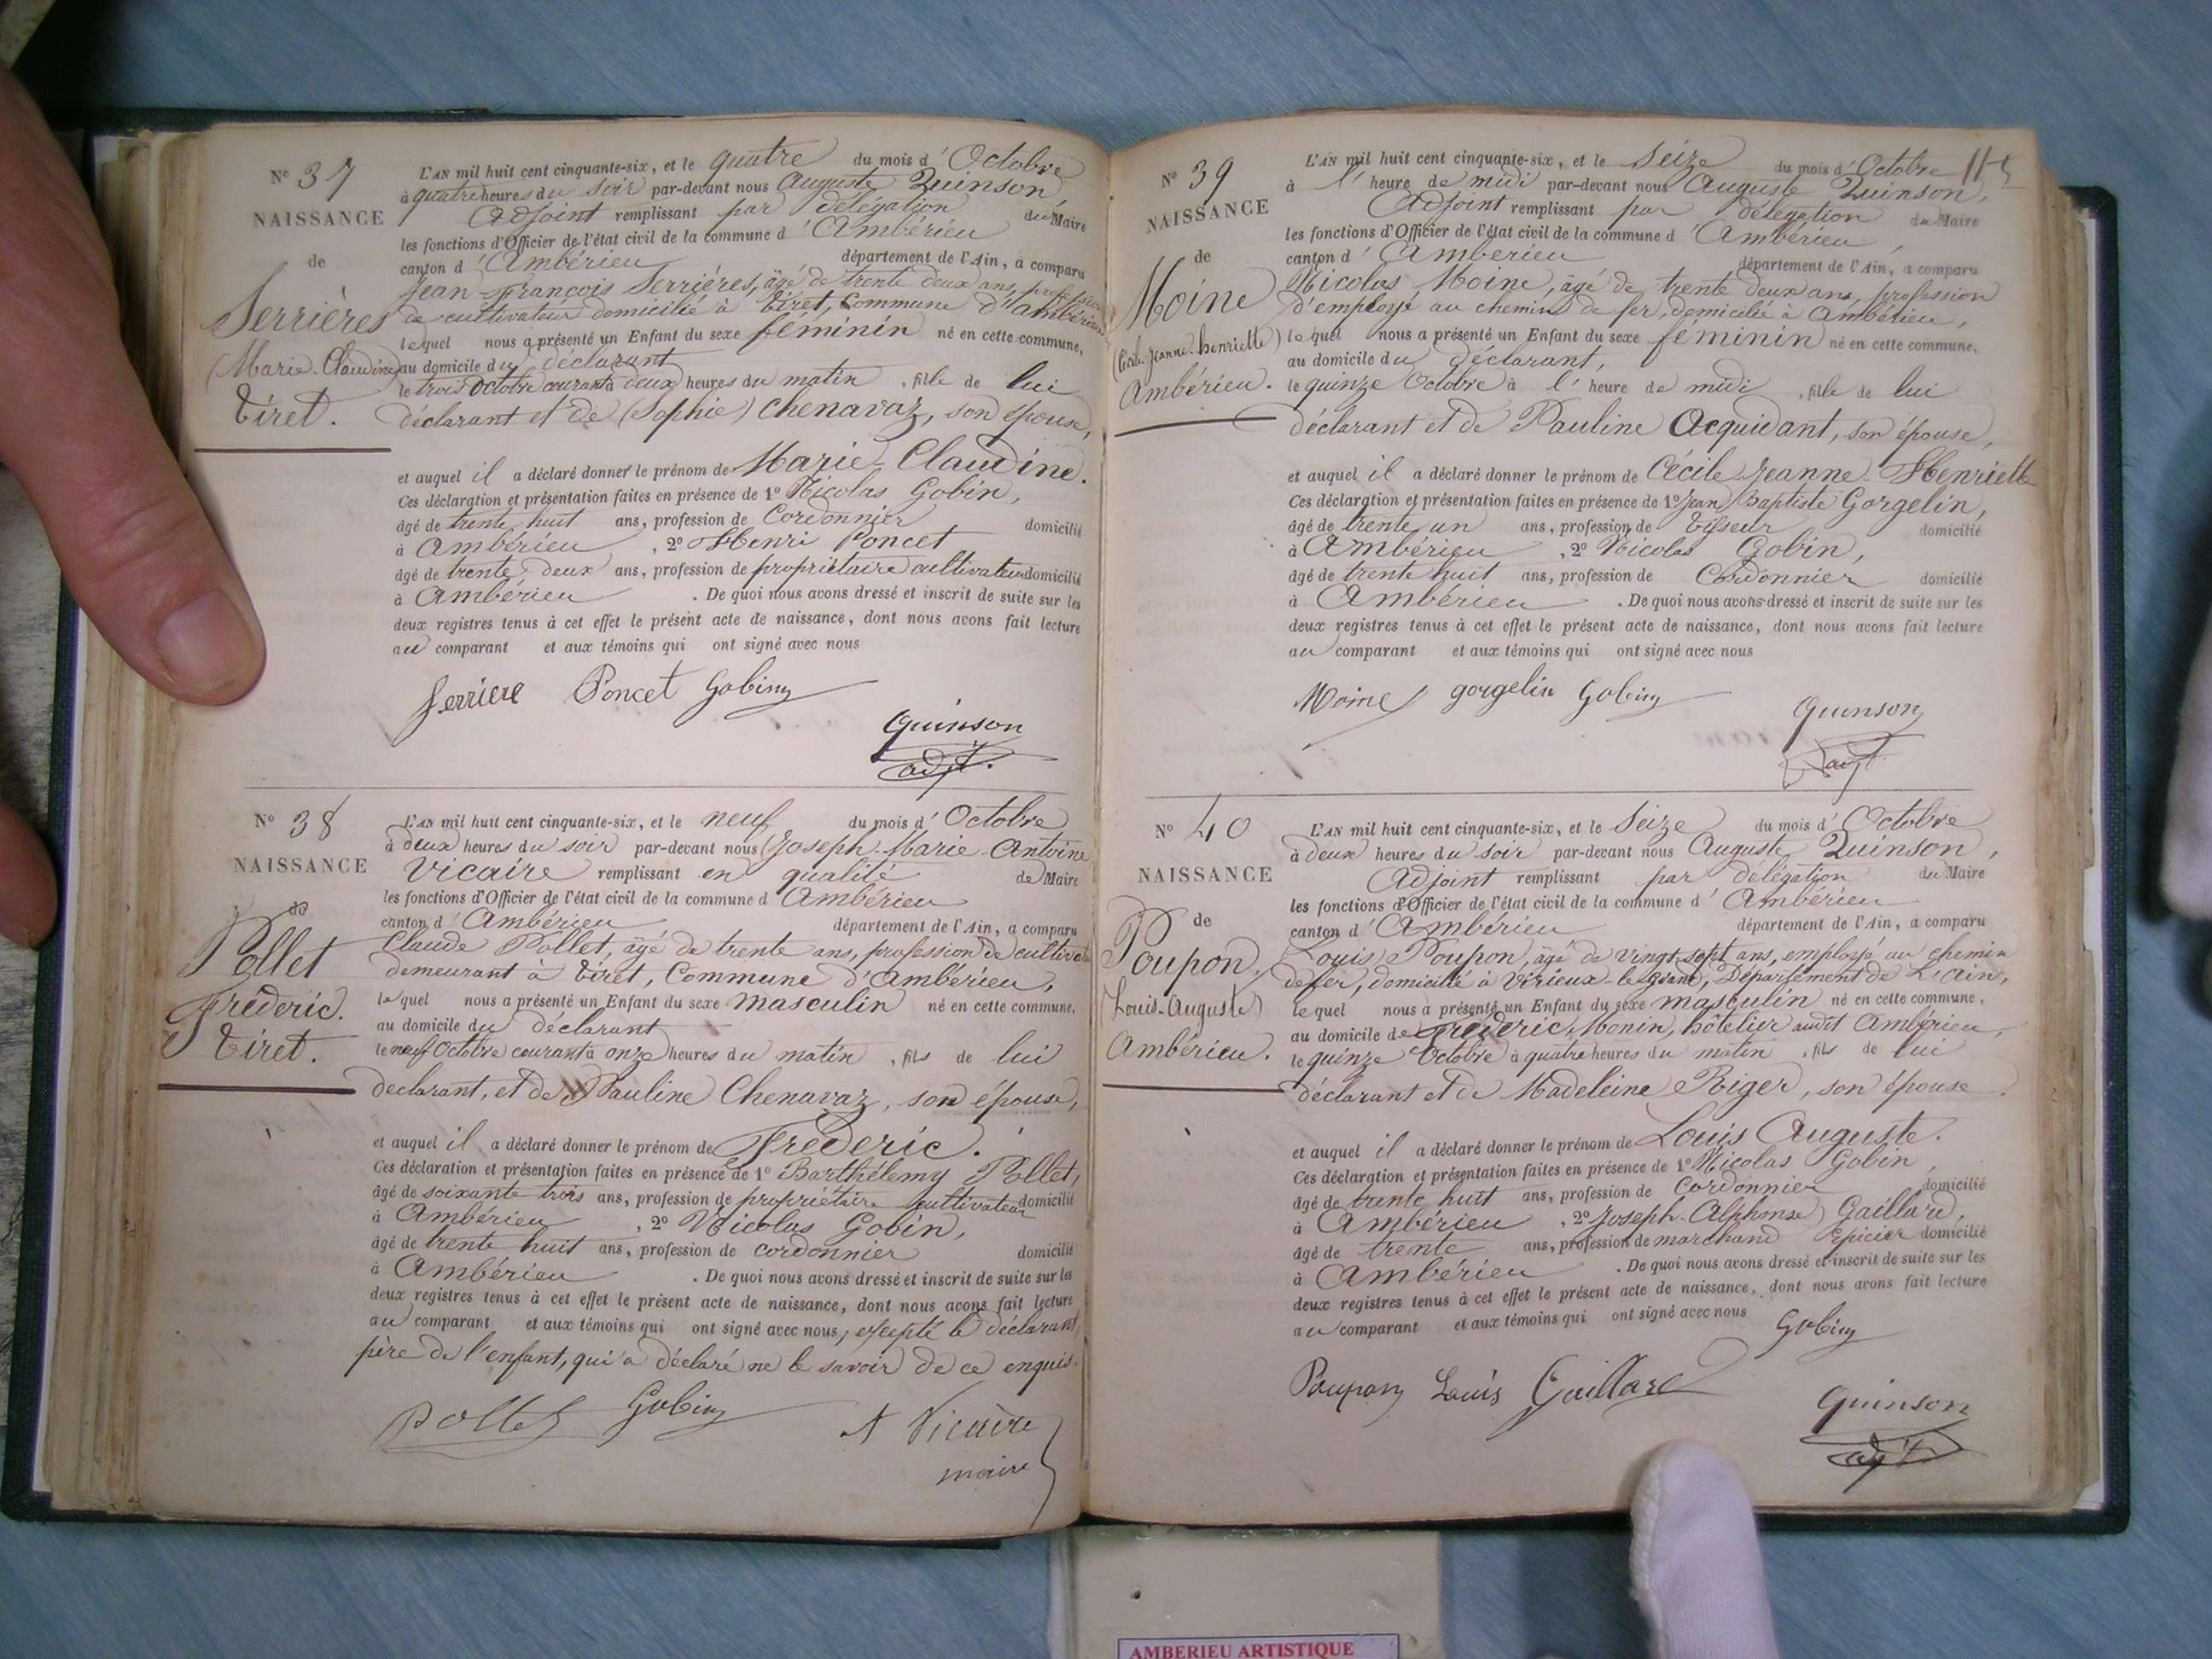 N° 37
NAISSANCE
de
Serrières
(Marie-Claudine)
Tiret.
L'AN mil huit cent cinquante-six, et le quatre du mois d'Octobre
à quatre heures du soir par-devant nous Auguste Quinson,
Adjoint remplissant par délégation du Maire
les fonctions d'Officier de l'état civil de la commune d'Ambérieu
canton d'Ambérieu département de l'Ain, a comparu
Jean-François Serrières, âgé de trente deux ans, profession
de cultivateur domicilié à Tiret, Commune d'Ambérieu
lequel nous a présenté un Enfant du sexe féminin né en cette commune,
au domicile du déclarant
le trois Octobre courant à deux heures du matin, fille de lui
déclarant et de (Sophie) Chenavaz, son épouse,
et auquel il a déclaré donner le prénom de Marie Claudine.
Ces déclaration et présentation faites en présence de 1° Nicolas Gobin,
âgé de trente huit ans, profession de Cordonnier domicilié
à Ambérieu, 2° Henri Poncet
âgé de trente deux ans, profession de propriétaire cultivateur domicilié
à Ambérieu. De quoi nous avons dressé et inscrit de suite sur les
deux registres tenus à cet effet le présent acte de naissance, dont nous avons fait lecture
au comparant et aux témoins qui ont signé avec nous
Serriere Poncet Gobin
Quinson
adjt.
N° 38
NAISSANCE
de
Pollet
Fréderic.
Tiret.
L'AN mil huit cent cinquante-six, et le neuf du mois d'Octobre
à deux heures du soir par-devant nous Joseph-Marie-Antoine
Vicaire remplissant en qualité de Maire
les fonctions d'Officier de l'état civil de la commune d'Ambérieu
canton d'Ambérieu département de l'Ain, a comparu
Claude Pollet, âgé de trente ans, profession de
demeurant à Tiret, Commune d'Ambérieu,
lequel nous a présenté un Enfant du sexe masculin né en cette commune,
au domicile du déclarant
le neuf Octobre courant à onze heures du matin, fils de lui
déclarant, et de Pauline Chenavaz, son épouse,
et auquel il a déclaré donner le prénom de Fréderic.
Ces déclaration et présentation faites en présence de 1° Barthélemy Pollet,
âgé de soixante trois ans, profession de propriétaire cultivateur domicilié
à Ambérieu, 2° Nicolas Gobin,
âgé de trente huit ans, profession de cordonnier domicilié
à Ambérieu. De quoi nous avons dressé et inscrit de suite sur les
deux registres tenus à cet effet le présent acte de naissance, dont nous avons fait lecture
au comparant et aux témoins qui ont signé avec nous, excepté le déclarant,
père de l'enfant, qui a déclaré ne le savoir de ce enquis.
Pollet Gobin A Vicaire
maire
115
N° 39
NAISSANCE
de
Moine
(Cécile-Jeanne-henriette)
Ambérieu.
L'AN mil huit cent cinquante-six, et le Seize du mois d'Octobre
à l'heure de midi par-devant nous Auguste Quinson,
Adjoint remplissant par délégation du Maire
les fonctions d'Officier de l'état civil de la commune d'Ambérieu,
canton d'Ambérieu département de l'Ain, a comparu
Nicolas Moine, âgé de trente deux ans, profession
d'employé au chemin de fer, domicilié à Ambérieu,
lequel nous a présenté un Enfant du sexe féminin né en cette commune,
au domicile du déclarant,
le quinze Octobre à l'heure de midi, fille de lui
déclarant et de Pauline Acquidant, son épouse,
et auquel il a déclaré donner le prénom de Cécile-Jeanne-Henriette
Ces déclaration et présentation faites en présence de 1° Jean Baptiste Gorgelin,
âgé de trente un ans, profession de Tisseur domicilié
à Ambérieu, 2° Nicolas Gobin,
âgé de trente huit ans, profession de Cordonnier domicilié
à Ambérieu. De quoi nous avons dressé et inscrit de suite sur les
deux registres tenus à cet effet le présent acte de naissance, dont nous avons fait lecture
au comparant et aux témoins qui ont signé avec nous
Moine gorgelin Gobin
Quinson
adjt
N° 40
NAISSANCE
de
Poupon,
(Louis-Auguste)
Ambérieu.
L'AN mil huit cent cinquante-six, et le Seize du mois d'Octobre
à deux heures du soir par-devant nous Auguste Quinson,
Adjoint remplissant par délégation du Maire
les fonctions d'Officier de l'état civil de la commune d'Ambérieu
canton d'Ambérieu département de l'Ain, a comparu
Louis Poupon, âgé de vingt-sept ans, employé au chemin
de fer, domicilié à Virieux-le-grand, Département de L'ain,
lequel nous a présenté un Enfant du sexe masculin né en cette commune,
au domicile de Fréderic Monin, hôtelier audit Ambérieu,
le quinze Octobre à quatre heures du matin, fils de lui
déclarant et de Madeleine Riger, son épouse.
et auquel il a déclaré donner le prénom de Louis Auguste.
Ces déclaration et présentation faites en présence de 1° Nicolas Gobin,
âgé de trente huit ans, profession de Cordonnier domicilié
à Ambérieu, 2° Joseph-Alphonse Gaillard,
âgé de trente ans, profession de marchand Epicier domicilié
à Ambérieu. De quoi nous avons dressé et inscrit de suite sur les
deux registres tenus à cet effet le présent acte de naissance, dont nous avons fait lecture
au comparant et aux témoins qui ont signé avec nous Gobin
Poupon Louis Gaillard
Quinson
adjt
AMBERIEU ARTISTIQUE